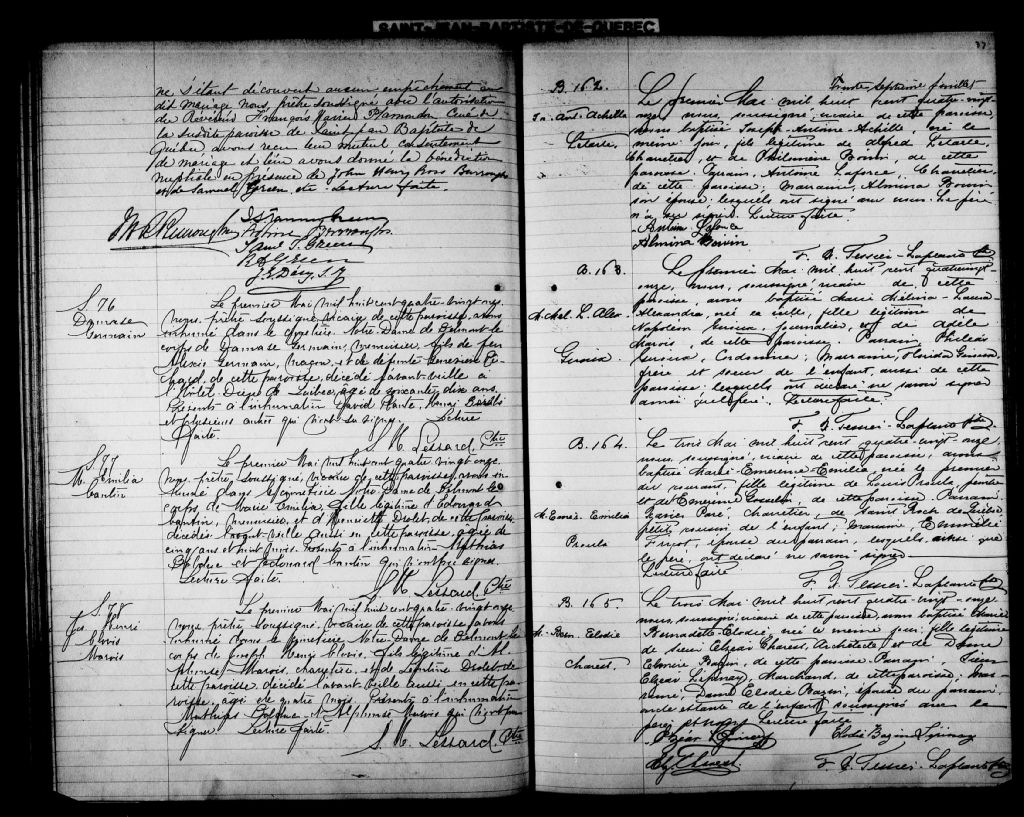 SAINT-JEAN-BAPTISTE-DE-QUEBEC
ne s'étant découvert aucun empêchement au
dit mariage Nous, prêtre soussigné avec l'autorisation
de Révérend François Xavier Plamondon Curé de
la susdite paroisse de Saint Jean Baptiste de
Québec avons reçu leur mutuel consentement
de mariage et leur avons donné la bénédiction
nuptiale en présence de John Henry Ross Burroughs
et de Samuel Green, etc. Lecture faite.
I. Fanny Green
Saml. T. Green
J. E. Désy, S.J.
S. 76
Damase
Germain
Le premier Mai mil huit cent quatre-vingt onze,
nous, prêtre soussigné, vicaire de cette paroisse, avons
inhumé dans le cimetière Notre Dame de Belmont le
corps de Damase Germain, menuisier, fils de feu
Alexis Germain, maçon, et de défunte
de cette paroisse, décédé l'avant veille à
l'Hôtel Dieu de Québec, âgé de soixante dix ans.
Présents à l'inhumation David
et plusieurs autres qui n'ont su signer. Lecture
faite.
S. M. Lessard, Ptre
S. 77
M. Emilia
Cantin
Le premier Mai mil huit cent quatre vingt onze,
nous, prêtre soussigné, vicaire de cette paroisse, avons in-
humé dans le cimetière Notre Dame de Belmont le
corps de Marie Emilia, fille légitime d'Edouard
Cantin, menuisier, et d'Henriette Drolet, de cette paroisse,
décédée l'avant veille aussi en cette paroisse, âgée de
cinq ans et huit mois. Présents à l'inhumation Mathias
Delphue et Edouard Cantin qui n'ont pu signer.
Lecture faite.
S. M. Lessard, Ptre
S. 78
Jos. Henri
Clovis
Marois
Le premier Mai mil huit cent quatre-vingt onze,
nous, prêtre soussigné, vicaire de cette paroisse, avons
inhumé dans le cimetière Notre Dame de Belmont le
corps de Joseph Henri Clovis, fils légitime d'Al-
phonse Marois, charretier, et de Léontine Drolet, de
cette paroisse, décédé l'avant veille aussi en cette pa-
roisse, âgé de quatre mois. Présents à l'inhumation
Mathias Delphue et Alphonse Marois qui n'ont pu
signer. Lecture faite.
S. M. Lessard, Ptre
77
Trente septième feuillet
B. 162.
Jos. Ant. Achille
Letarte
Le premier Mai mil huit cent quatre-vingt
onze nous, soussigné, vicaire de cette paroisse,
avons baptisé Joseph-Antoine-Achille, né le
même jour, fils légitime de Alfred Letarte,
Charretier, et de Philomène Boivin, de cette
paroisse. Parrain, Antoine Laforce, Charretier
de cette paroisse; Marraine, Almina Boivin
son épouse, lesquels ont signé avec nous. Le père
n'a su signer. Lecture faite.
Antoine Laforce
Almina Boivin
F. A. Tessier-Laplante ptre
B. 163.
M. Mel. L. Alex.
Giroux
Le premier Mai mil huit cent quatre-vingt-
onze, nous, soussigné, vicaire de cette
paroisse, avons baptisé Marie Mélvina-Laura
Alexandra, née la veille, fille légitime de
Napoléon Giroux, journalier, et de Adèle
Marois, de cette paroisse. Parrain Philéas
Giroux, Cordonnier; Marraine, Floridа Giroux
frère et soeur de l'enfant, aussi de cette
paroisse; lesquels ont déclaré ne savoir signer
ainsi que le père. Lecture faite.
F. A. Tessier-Laplante ptre
B. 164.
M. Emér. Emilia
Proulx
Le trois Mai mil huit cent quatre-vingt onze
nous, soussigné, vicaire de cette paroisse, avons
baptisé Marie-Emérence-Emilia, née le premier
du courant, fille légitime de Louis Proulx,
et de Emérence Gosselin, de cette paroisse. Parrain
Xavier Paré, Charretier, de Saint Roch de Québec
petit cousin de l'enfant; Marraine,
épouse du parrain, lesquels, ainsi que
le père, ont déclaré ne savoir signer.
Lecture faite
F. A. Tessier-Laplante ptre
B. 165.
M. Bern. Elodie
Charest
Le trois Mai mil huit cent quatre-vingt-onze
nous, soussigné, vicaire de cette paroisse, avons baptisé Marie
Bernadette-Elodie, née le même jour, fille légitime
de Sieur Elzéar Charest, Architecte et de Dame
Elmire Bazin, de cette paroisse. Parrain, Sieur
Elzéar Lépinay, Marchand, de cette paroisse; mar-
raine, Dame Elodie Bazin, épouse du parrain,
oncle et tante de l'enfant, soussignés avec le
père et nous. Lecture faite
Elzéar Lépinay
Elodie Bazin Lépinay
Elz. Charest
F. A. Tessier-Laplante ptre